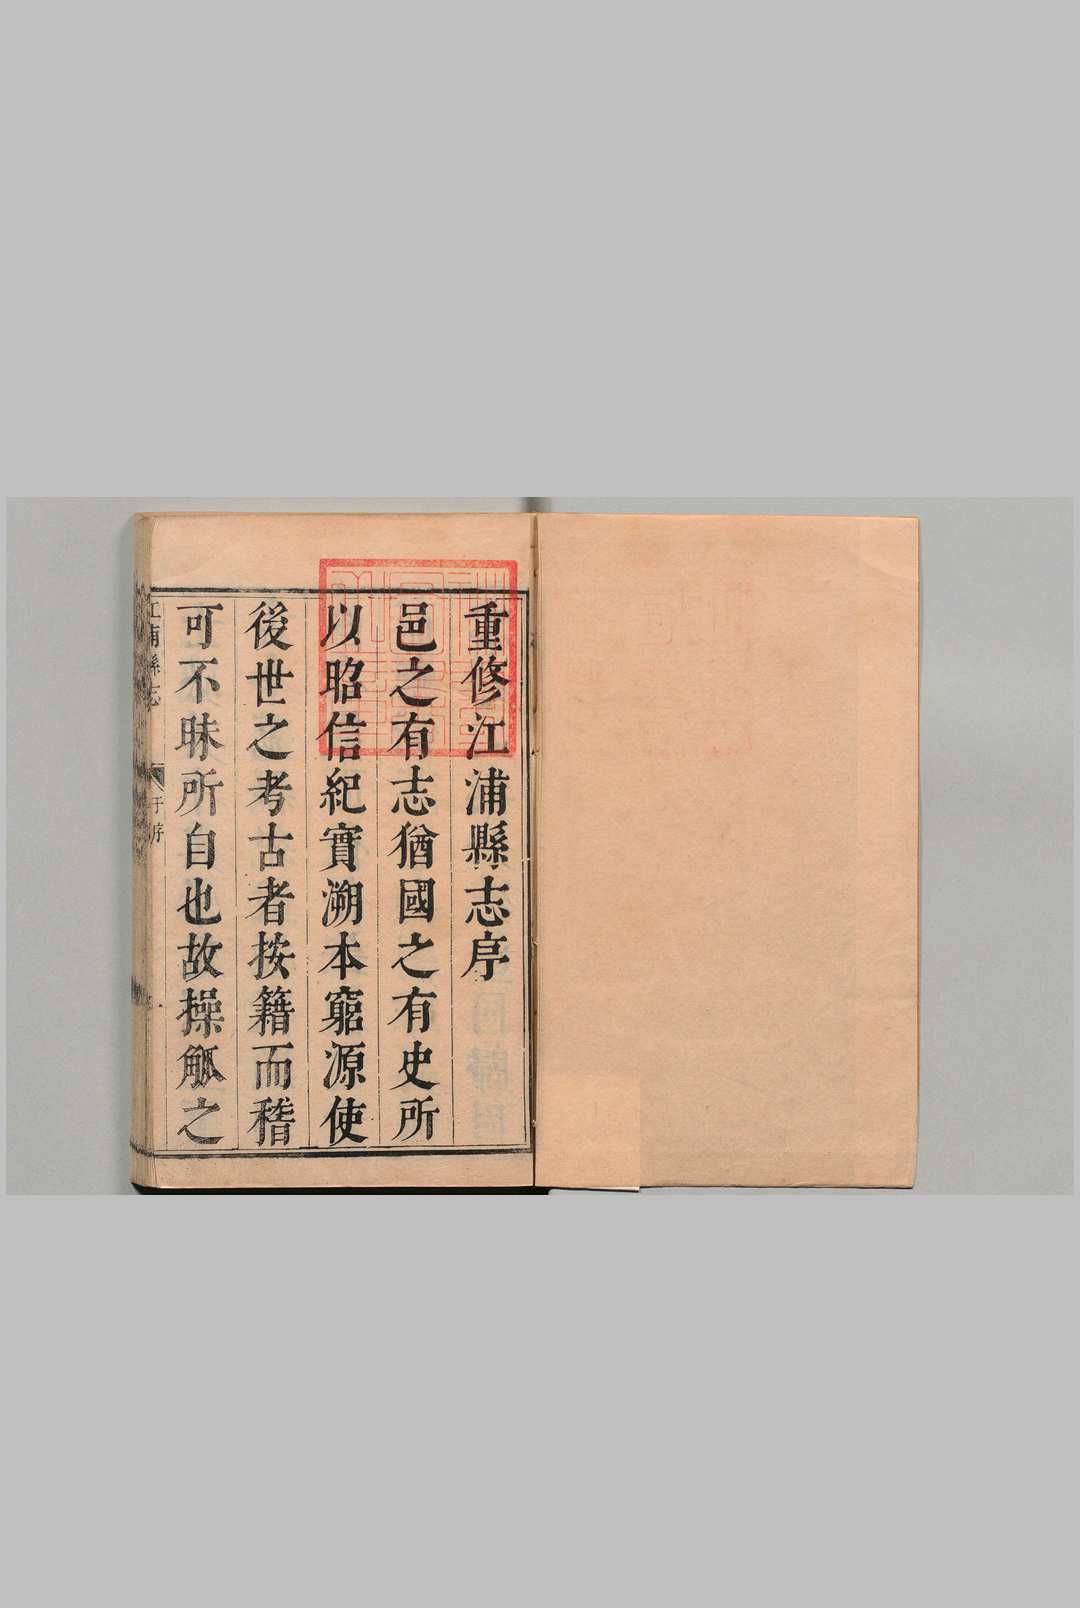 重修江浦縣志序
邑之有志猶國之有史所
以昭信紀實溯本窮源使
後世之考古者按籍而稽
可不昧所自也故操觚之
江浦縣志
于序
一